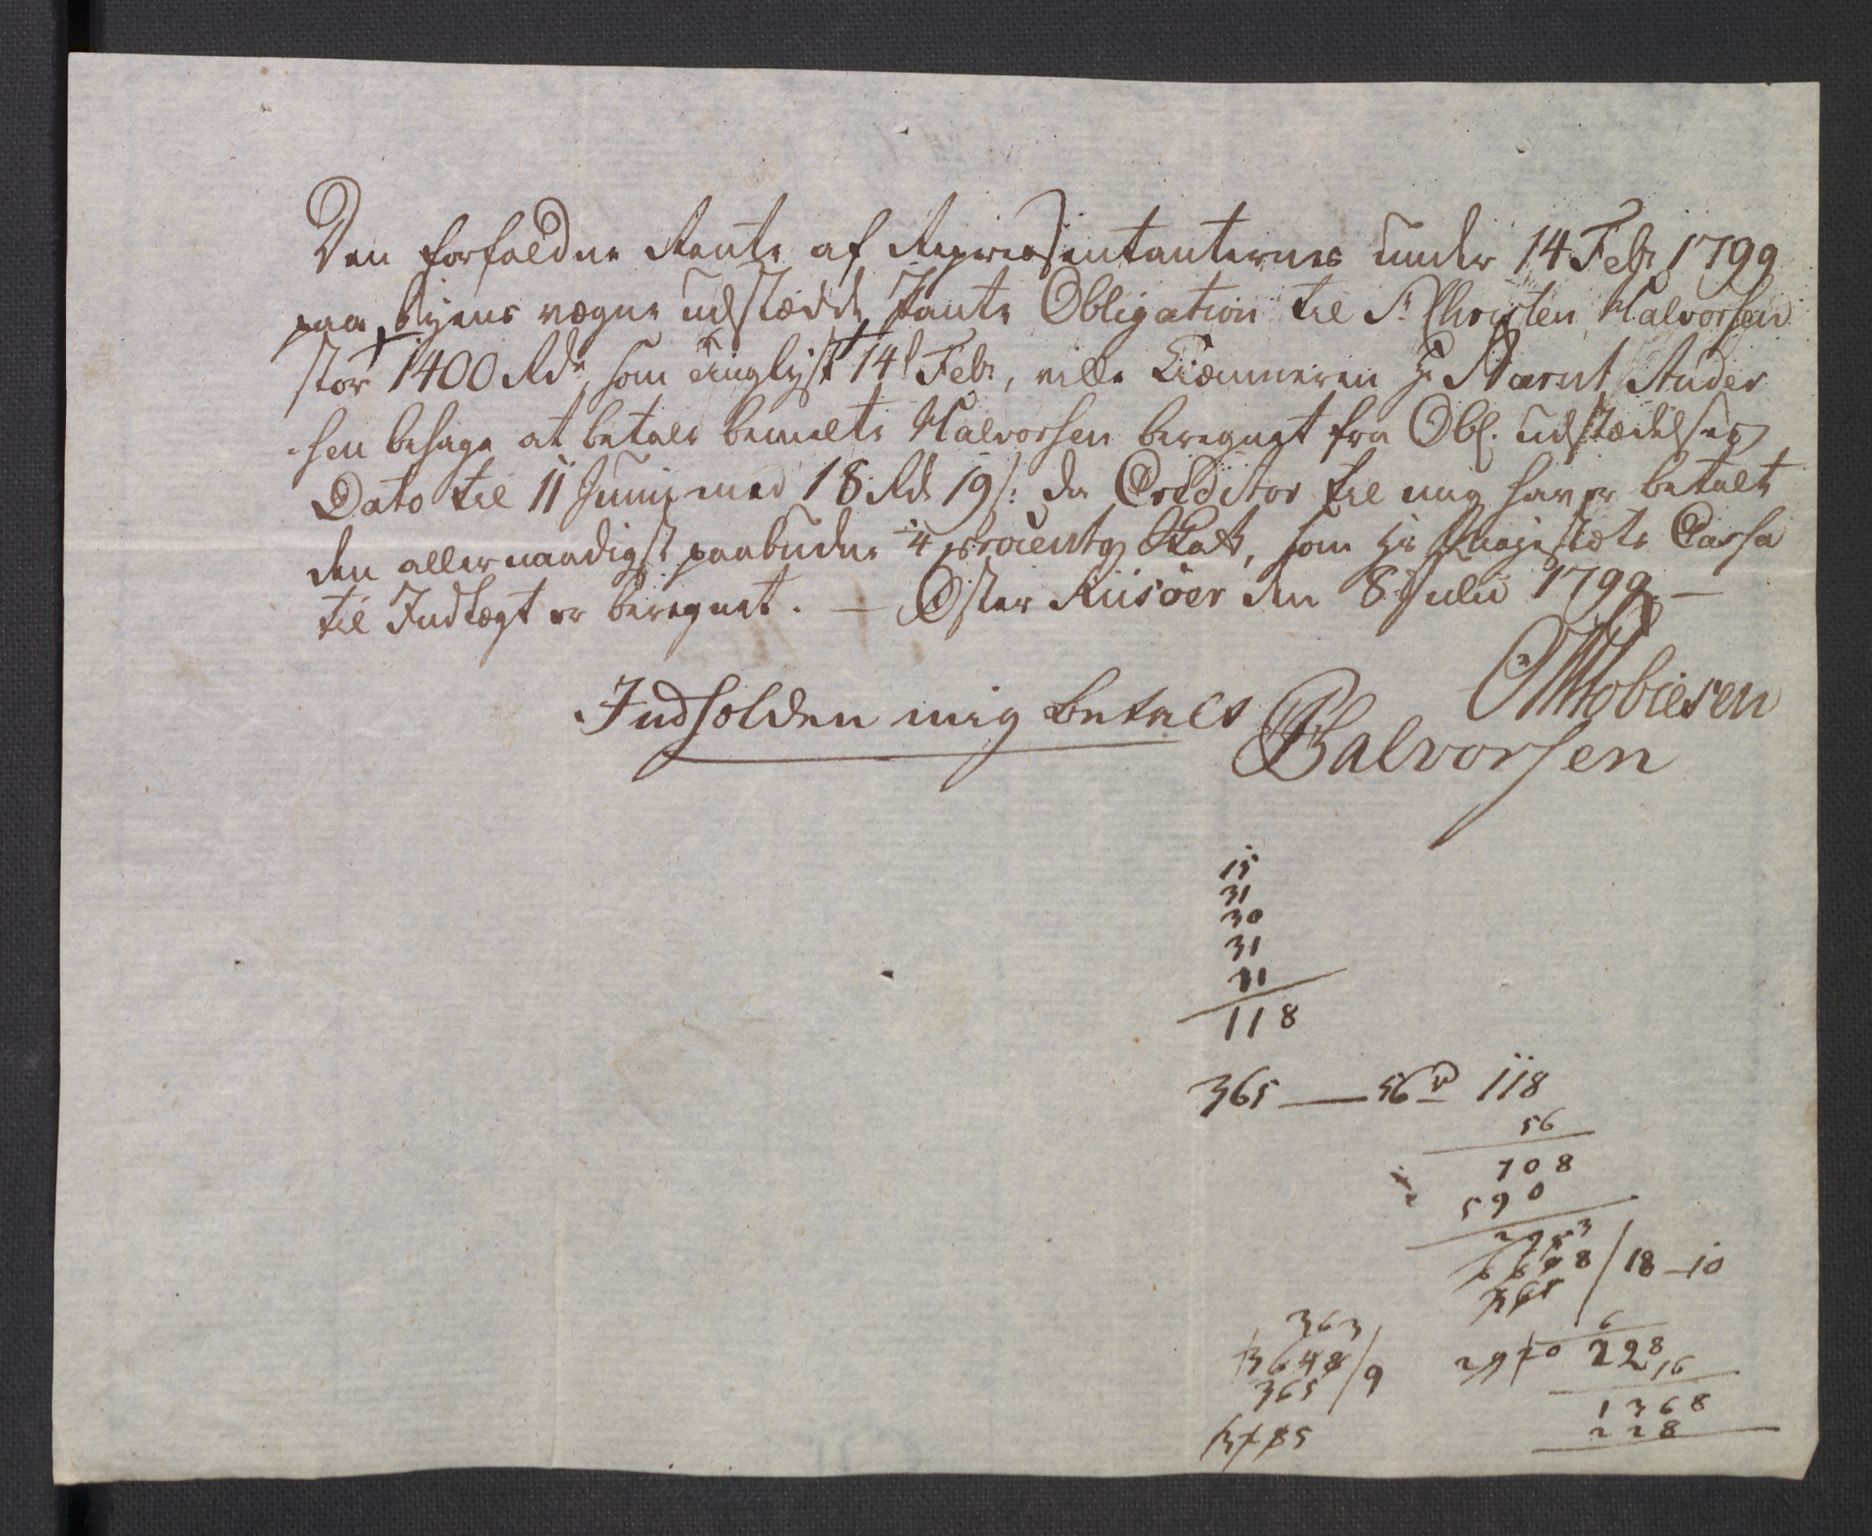 Den forfaldne Rente af Repræsentanternes under 14 Febr 1799
paa Byens vegne udstædde Pante Obligation til Sr Christen Halvorsen
stor 1400 Rdr, som tinglyst 14 Febr, ville Kiæmneren Hr Aarnt Ander
-sen behage at betale bemelte Halvorsen beregnet fra Obl. udstædelses
Dato til 11 Junii med 18 Rd 19 s: da Creditor til mig haver betalt
den allernaadigst paabudne 4 procents Skatt, som Hs Majestæts Cassa
til Indtægt er beregnet. — Øster Riisöer den 8 Julii 1799 —
Tobiesen
Indholden mig betalt Halvorsen
15
31
30
31
11
118
365 — 56 r 118
56
708
590
6608 / 18 — 10
365
363
3648 / 9
365
6
228
16
1368
228